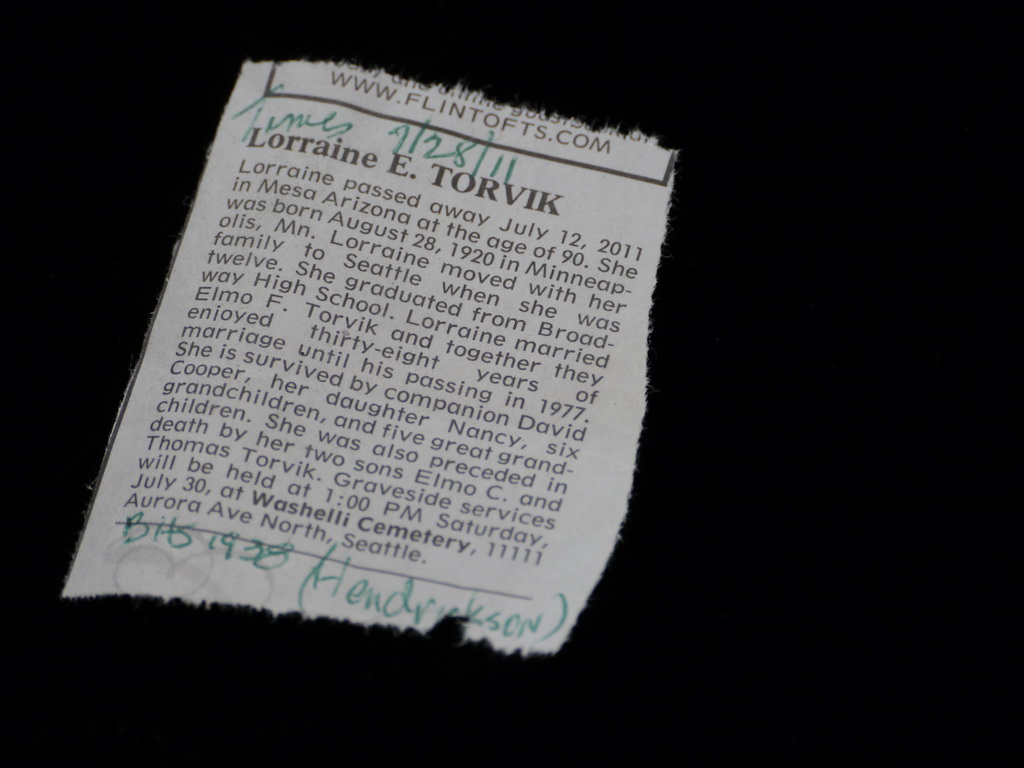 WWW.FLINTOFTS.COM
Times 7/28/11
Lorraine E. TORVIK
Lorraine passed away July 12, 2011
in Mesa Arizona at the age of 90. She
was born August 28, 1920 in Minneap-
olis, Mn. Lorraine moved with her
family to Seattle when she was
twelve. She graduated from Broad-
way High School. Lorraine married
Elmo F. Torvik and together they
enjoyed thirty-eight years of
marriage until his passing in 1977.
She is survived by companion David
Cooper, her daughter Nancy, six
grandchildren, and five great grand-
children. She was also preceded in
death by her two sons Elmo C. and
Thomas Torvik. Graveside services
will be held at 1:00 PM Saturday,
July 30, at Washelli Cemetery, 11111
Aurora Ave North, Seattle.
BHS 1938 (Hendrickson)